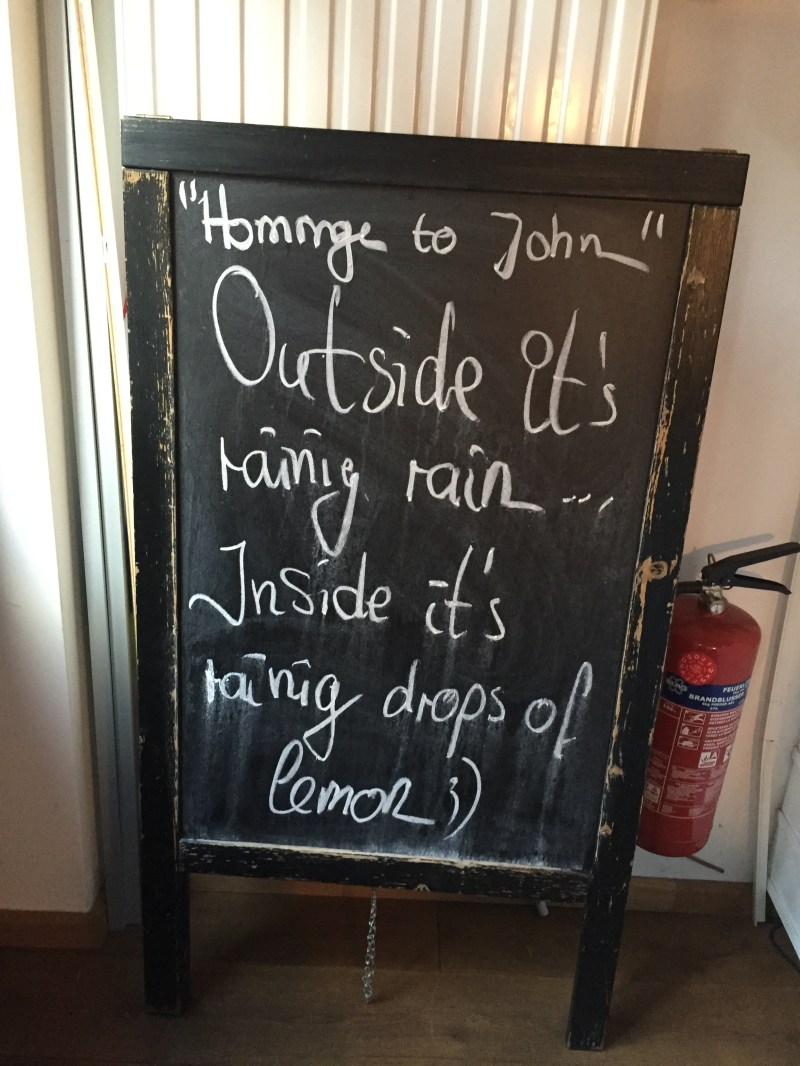 "Hommge to John"
Outside it's
rainig rain...
Inside it's
rainig drops of
lemon ;)
FEUER
BRANDBLUSSER